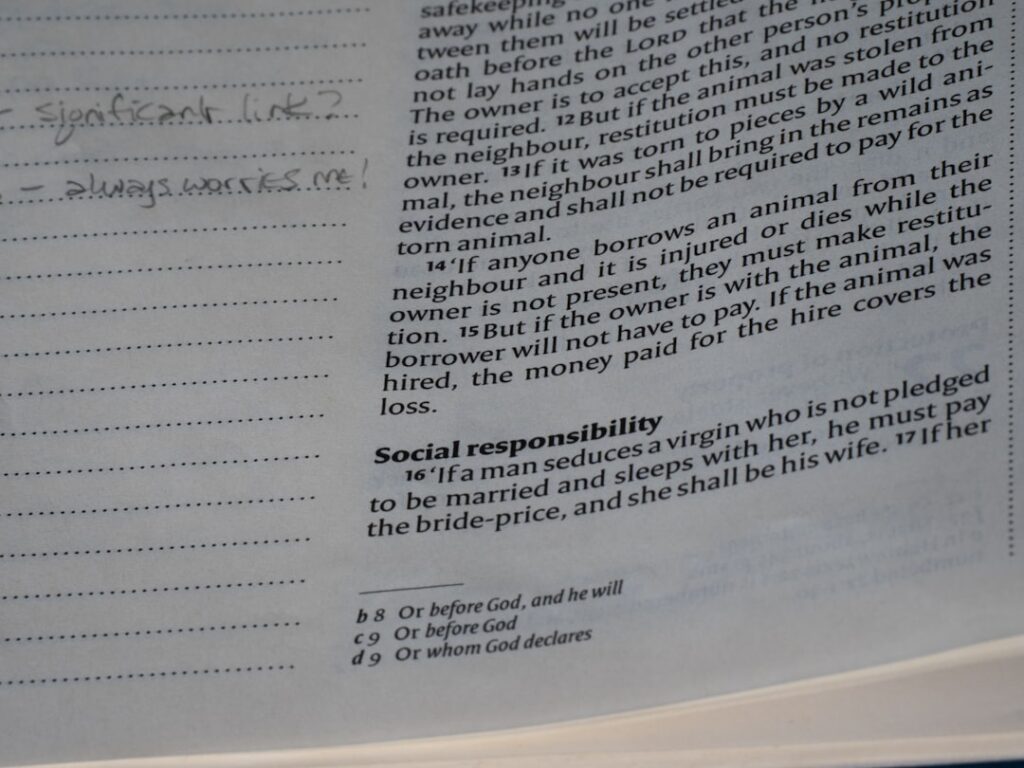 - significant link?
- always worries me!
safekeeping
away while no one
tween them will be settled
oath before the LORD that the
not lay hands on the other person's
The owner is to accept this, and no restitution
is required. 12 But if the animal was stolen from
the neighbour, restitution must be made to the
owner. 13 If it was torn to pieces by a wild ani-
mal, the neighbour shall bring in the remains as
evidence and shall not be required to pay for the
torn animal.
14 'If anyone borrows an animal from their
neighbour and it is injured or dies while the
owner is not present, they must make restitu-
tion. 15 But if the owner is with the animal, the
borrower will not have to pay. If the animal was
hired, the money paid for the hire covers the
loss.
Social responsibility
16 'If a man seduces a virgin who is not pledged
to be married and sleeps with her, he must pay
the bride-price, and she shall be his wife. 17 If her
b 8 Or before God, and he will
c 9 Or before God
d 9 Or whom God declares